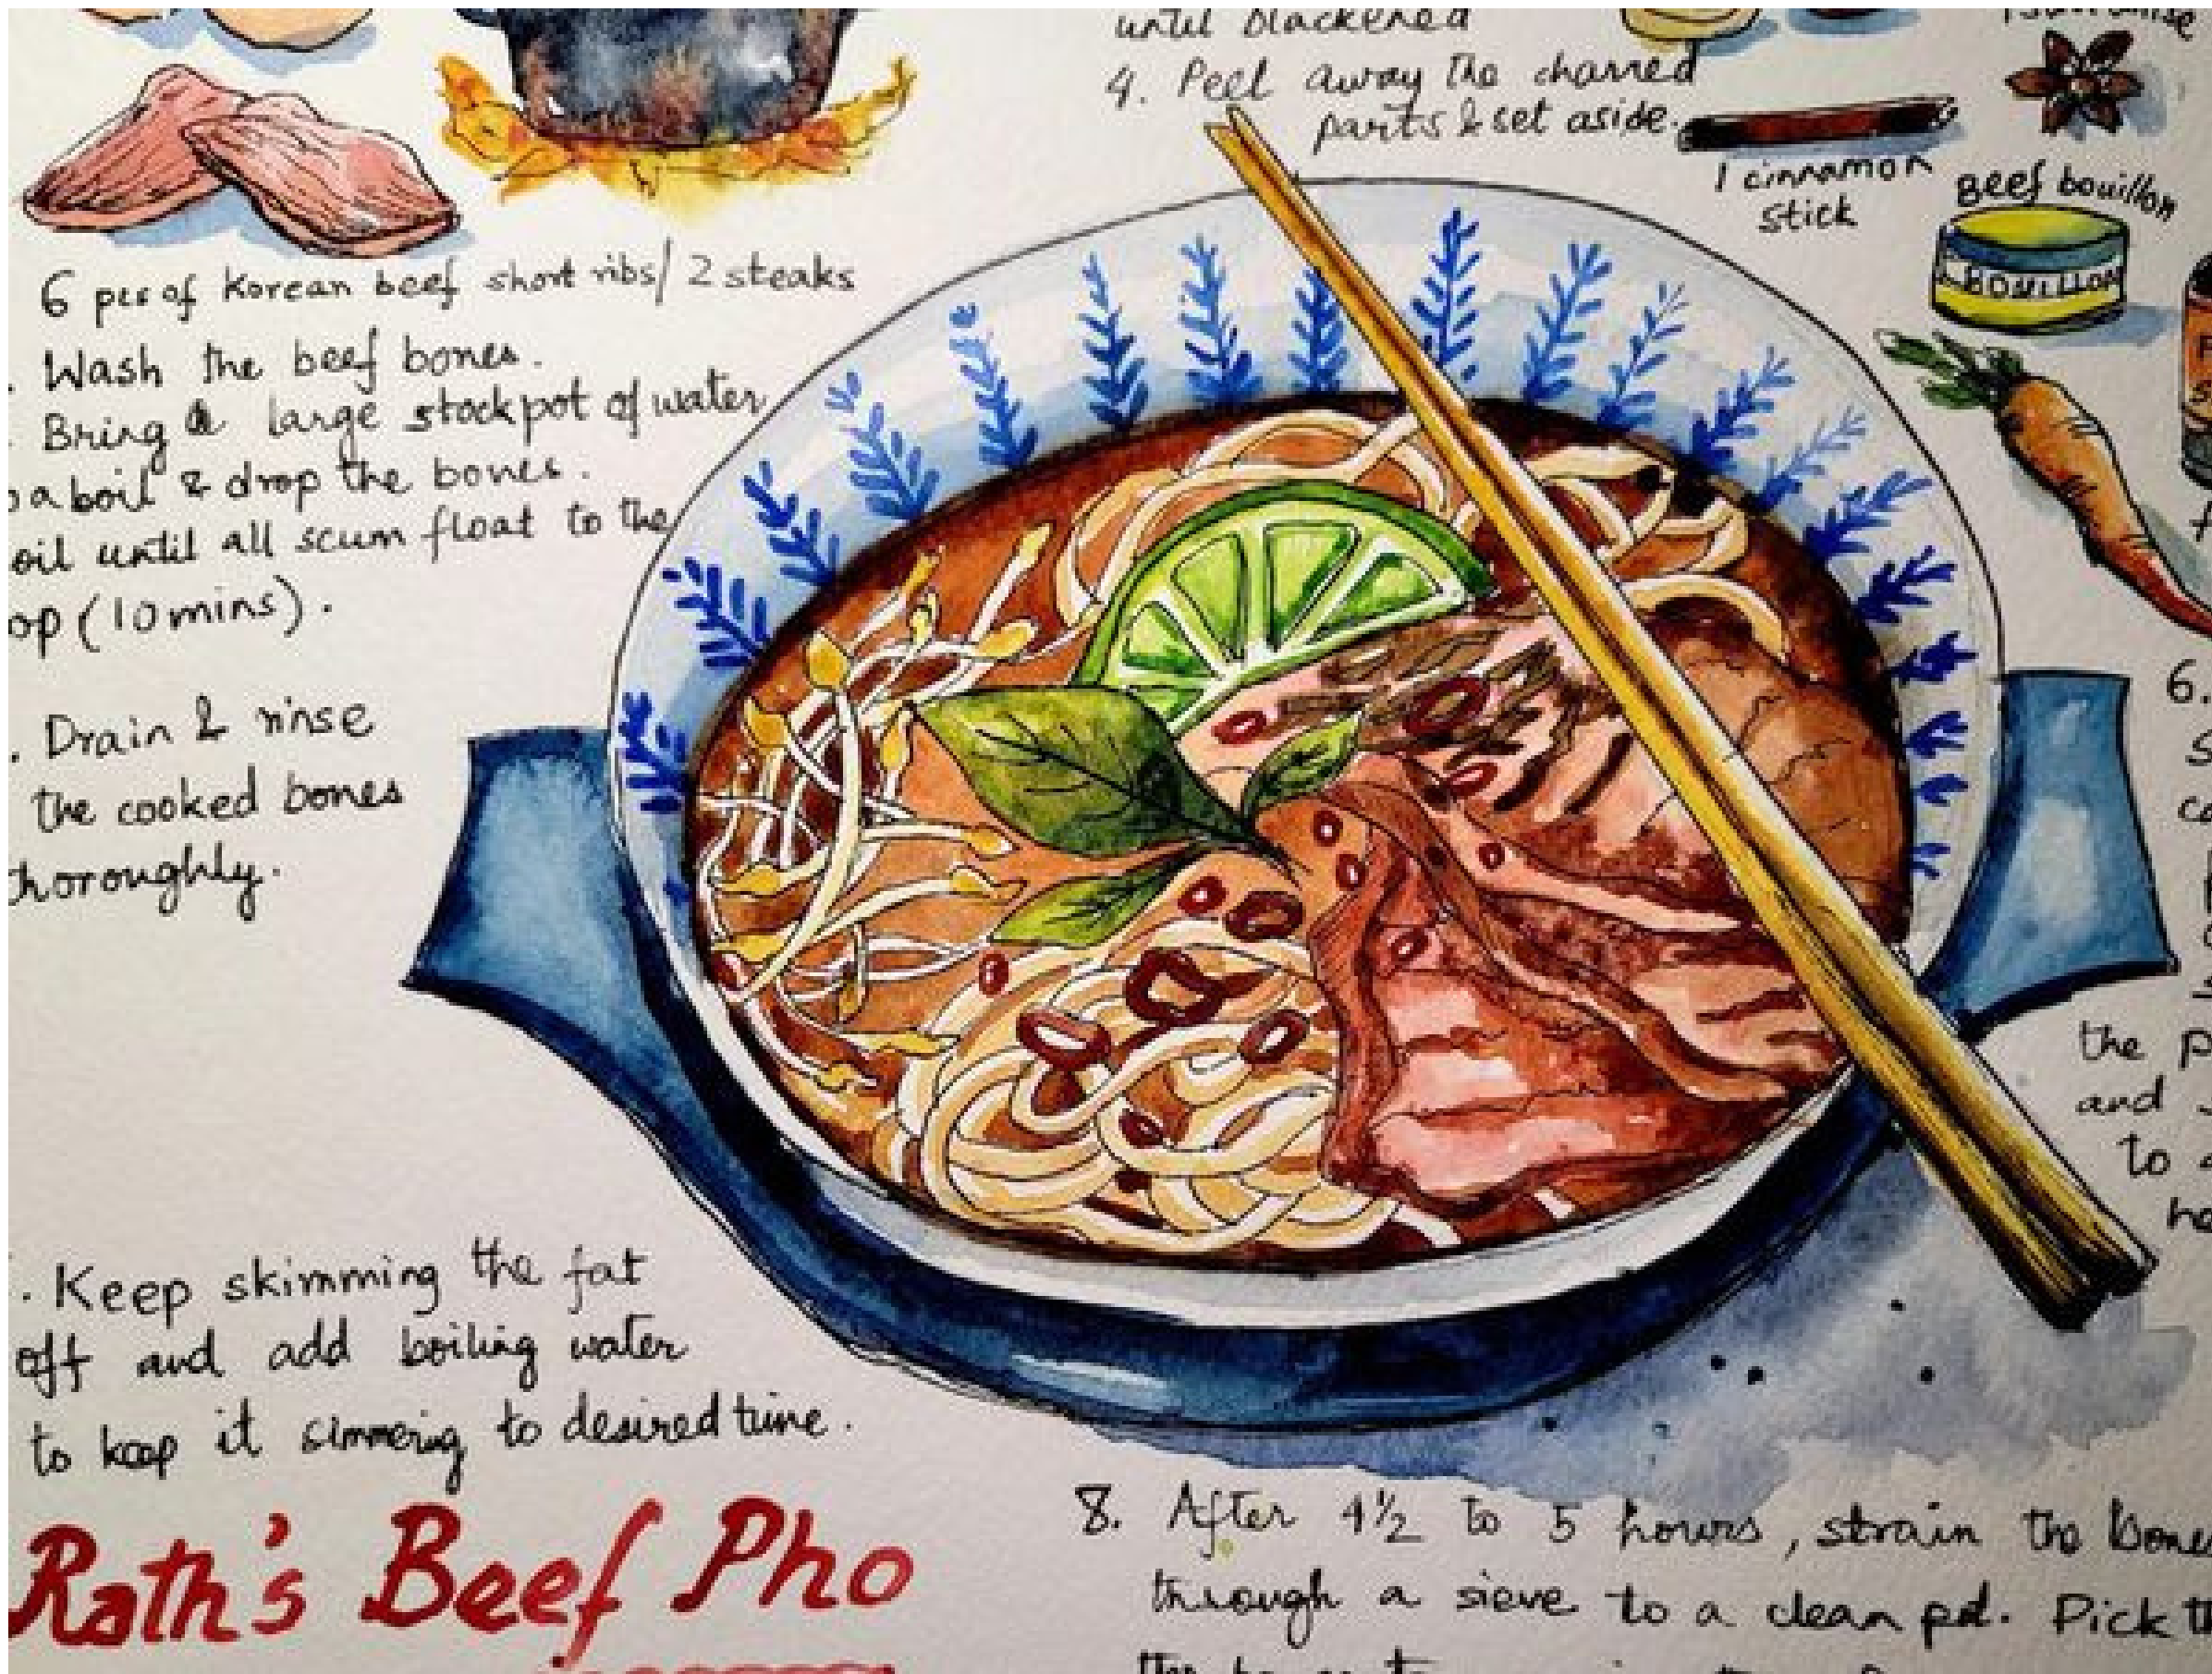 until blackened
4. Peel away the charred
parts & set aside.
1 cinnamon
stick
Beef bouillon
BOUILLON
6 pcs of Korean beef short ribs/ 2 steaks
. Wash the beef bones.
. Bring a large stockpot of water
a boil & drop the bones.
oil until all scum float to the
op (10 mins).
. Drain & rinse
the cooked bones
thoroughly.
6.
the p
and
to
. Keep skimming the fat
off and add boiling water
to keep it simmerig to desired time.
Rath's Beef Pho
8. After 4½ to 5 hours, strain the bones
through a sieve to a clean pot. Pick th